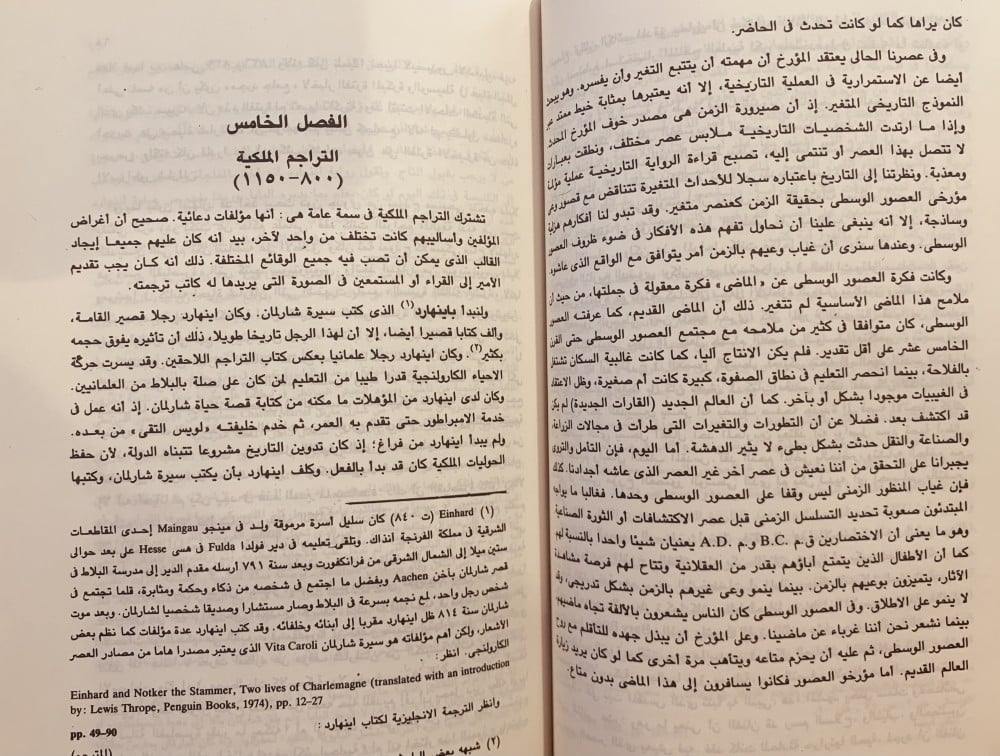 كان يراها كما لو كانت تحدث فى الحاضر.
وفى عصرنا الحالى يعتقد المؤرخ أن مهمته أن يتتبع التغير وأن يفسره. وهو يبحث
أيضا عن الاستمرارية فى العملية التاريخية، إلا أنه يعتبرها بمثابة خيط ممتد عبر
النموذج التاريخى المتغير. إذ أن صيرورة الزمن هى مصدر خوف المؤرخ المحدث
وإذا ما ارتدت الشخصيات التاريخية ملابس عصر مختلف، ونطقت بعبارات
لا تتصل بهذا العصر أو تنتمى إليه، تصبح قراءة الرواية التاريخية عملية مؤلمة
ومعذبة. ونظرتنا إلى التاريخ باعتباره سجلا للأحداث المتغيرة تتناقض مع قصور وعى
مؤرخى العصور الوسطى بحقيقة الزمن كعنصر متغير. وقد تبدو لنا أفكارهم هزلية
وساذجة، إلا أنه ينبغى علينا أن نحاول تفهم هذه الأفكار فى ضوء ظروف العصور
الوسطى. وعندها سنرى أن غياب وعيهم بالزمن أمر يتوافق مع الواقع الذى عاشوه.
وكانت فكرة العصور الوسطى عن «الماضى» فكرة معقولة فى جملتها، من حيث أن
ملامح هذا الماضى الأساسية لم تتغير. ذلك أن الماضى القديم، كما عرفته العصور
الوسطى، كان متوافقا فى كثير من ملامحه مع مجتمع العصور الوسطى حتى القرن
الخامس عشر على أقل تقدير. فلم يكن الانتاج آليا، كما كانت غالبية السكان تشتغل
بالفلاحة، بينما انحصر التعليم فى نطاق الصفوة، كبيرة كانت أم صغيرة، وظل الاعتقاد
فى الغيبيات موجودا بشكل أو بآخر. كما أن العالم الجديد (القارات الجديدة) لم يكن
قد اكتشف بعد. فضلا عن أن التطورات والتغيرات التى طرأت فى مجالات الزراعة
والصناعة والنقل حدثت بشكل بطىء لا يثير الدهشة. أما اليوم، فإن التأمل والتروى
يجبرانا على التحقق من أننا نعيش فى عصر آخر غير العصر الذى عاشه أجدادنا. كذلك
فإن غياب المنظور الزمنى ليس وقفا على العصور الوسطى وحدها. فغالبا ما يواجه
المبتدئون صعوبة تحديد التسلسل الزمنى قبل عصر الاكتشافات أو الثورة الصناعية
وهو ما يعنى أن الاختصارين ق.م .B.C و.م .A.D يعنيان شيئا واحدا بالنسبة لهم
كما أن الأطفال الذين يتمتع آباؤهم بقدر من العقلانية وتتاح لهم فرصة مشاهدة
الآثار، يتميزون بوعيهم بالزمن. بينما ينمو وعى غيرهم بالزمن بشكل تدريجى، وقد
لا ينمو على الاطلاق. وفى العصور الوسطى كان الناس يشعرون بالألفة تجاه ماضيهم
بينما نشعر نحن أننا غرباء عن ماضينا. وعلى المؤرخ أن يبذل جهده للتأقلم مع روح
العصور الوسطى، ثم عليه أن يحزم متاعه ويتأهب مرة أخرى كما لو كان يريد زيارة
العالم القديم. أما مؤرخو العصور فكانوا يسافرون إلى هذا الماضى بدون متاع.
الفصل الخامس
التراجم الملكية
(٨٠٠-١١٥٠)
تشترك التراجم الملكية فى سمة عامة هى: أنها مؤلفات دعائية. صحيح أن أغراض
المؤلفين وأساليبهم كانت تختلف من واحد لآخر، بيد أنه كان عليهم جميعا إيجاد
القالب الذى يمكن أن تصب فيه جميع الوقائع المختلفة. ذلك أنه كان يجب تقديم
الأمير إلى القراء أو المستمعين فى الصورة التى يريدها له كاتب ترجمته.
ولنبدأ باينهارد(١) الذى كتب سيرة شارلمان. وكان اينهارد رجلا قصير القامة،
وألف كتابا قصيرا أيضا، إلا أن لهذا الرجل تاريخا طويلا، ذلك أن تأثيره يفوق حجمه
بكثير(٢). وكان اينهارد رجلا علمانيا بعكس كتاب التراجم اللاحقين. وقد يسرت حركة
الاحياء الكارولنجية قدرا طيبا من التعليم لمن كان على صلة بالبلاط من العلمانيين.
وكان لدى اينهارد من المؤهلات ما مكنه من كتابة قصة حياة شارلمان. إذ أنه عمل فى
خدمة الامبراطور حتى تقدم به العمر، ثم خدم خليفته «لويس التقى» من بعده.
ولم يبدأ اينهارد من فراغ؛ إذ كان تدوين التاريخ مشروعا تتبناه الدولة، لأن حفظ
الحوليات الملكية كان قد بدأ بالفعل. وكلف اينهارد بأن يكتب سيرة شارلمان، وكتبها
(١) Einhard (ت ٨٤٠) كان سليل أسرة مرموقة ولد فى مينجو Maingau إحدى المقاطعات
الشرقية فى مملكة الفرنجة آنذاك. وتلقى تعليمه فى دير فولدا Fulda فى هسى Hesse على بعد حوالى
ستين ميلا إلى الشمال الشرقى من فرانكفورت وبعد سنة ٧٩١ أرسله مقدم الدير إلى مدرسة البلاط فى
قصر شارلمان بآخن Aachen وبفضل ما اجتمع فى شخصه من ذكاء وحكمة ومثابرة، قلما تجتمع فى
شخص رجل واحد، لمع نجمه بسرعة فى البلاط وصار مستشارا وصديقا شخصيا لشارلمان. وبعد موت
شارلمان سنة ٨١٤ ظل اينهارد مقربا إلى ابنائه وخلفائه. وقد كتب اينهارد عدة مؤلفات كما نظم بعض
الأشعار، ولكن أهم مؤلفاته هو سيرة شارلمان Vita Caroli الذى يعتبر مصدرا هاما من مصادر العصر
الكارولنجى. انظر:
Einhard and Notker the Stammer, Two lives of Charlemagne (translated with an introduction
by: Lewis Thrope, Penguin Books, 1974), pp. 12-27
وانظر الترجمة الانجليزية لكتاب اينهارد:
pp. 49-90
(المترجم)
(٢) شبهه بعض